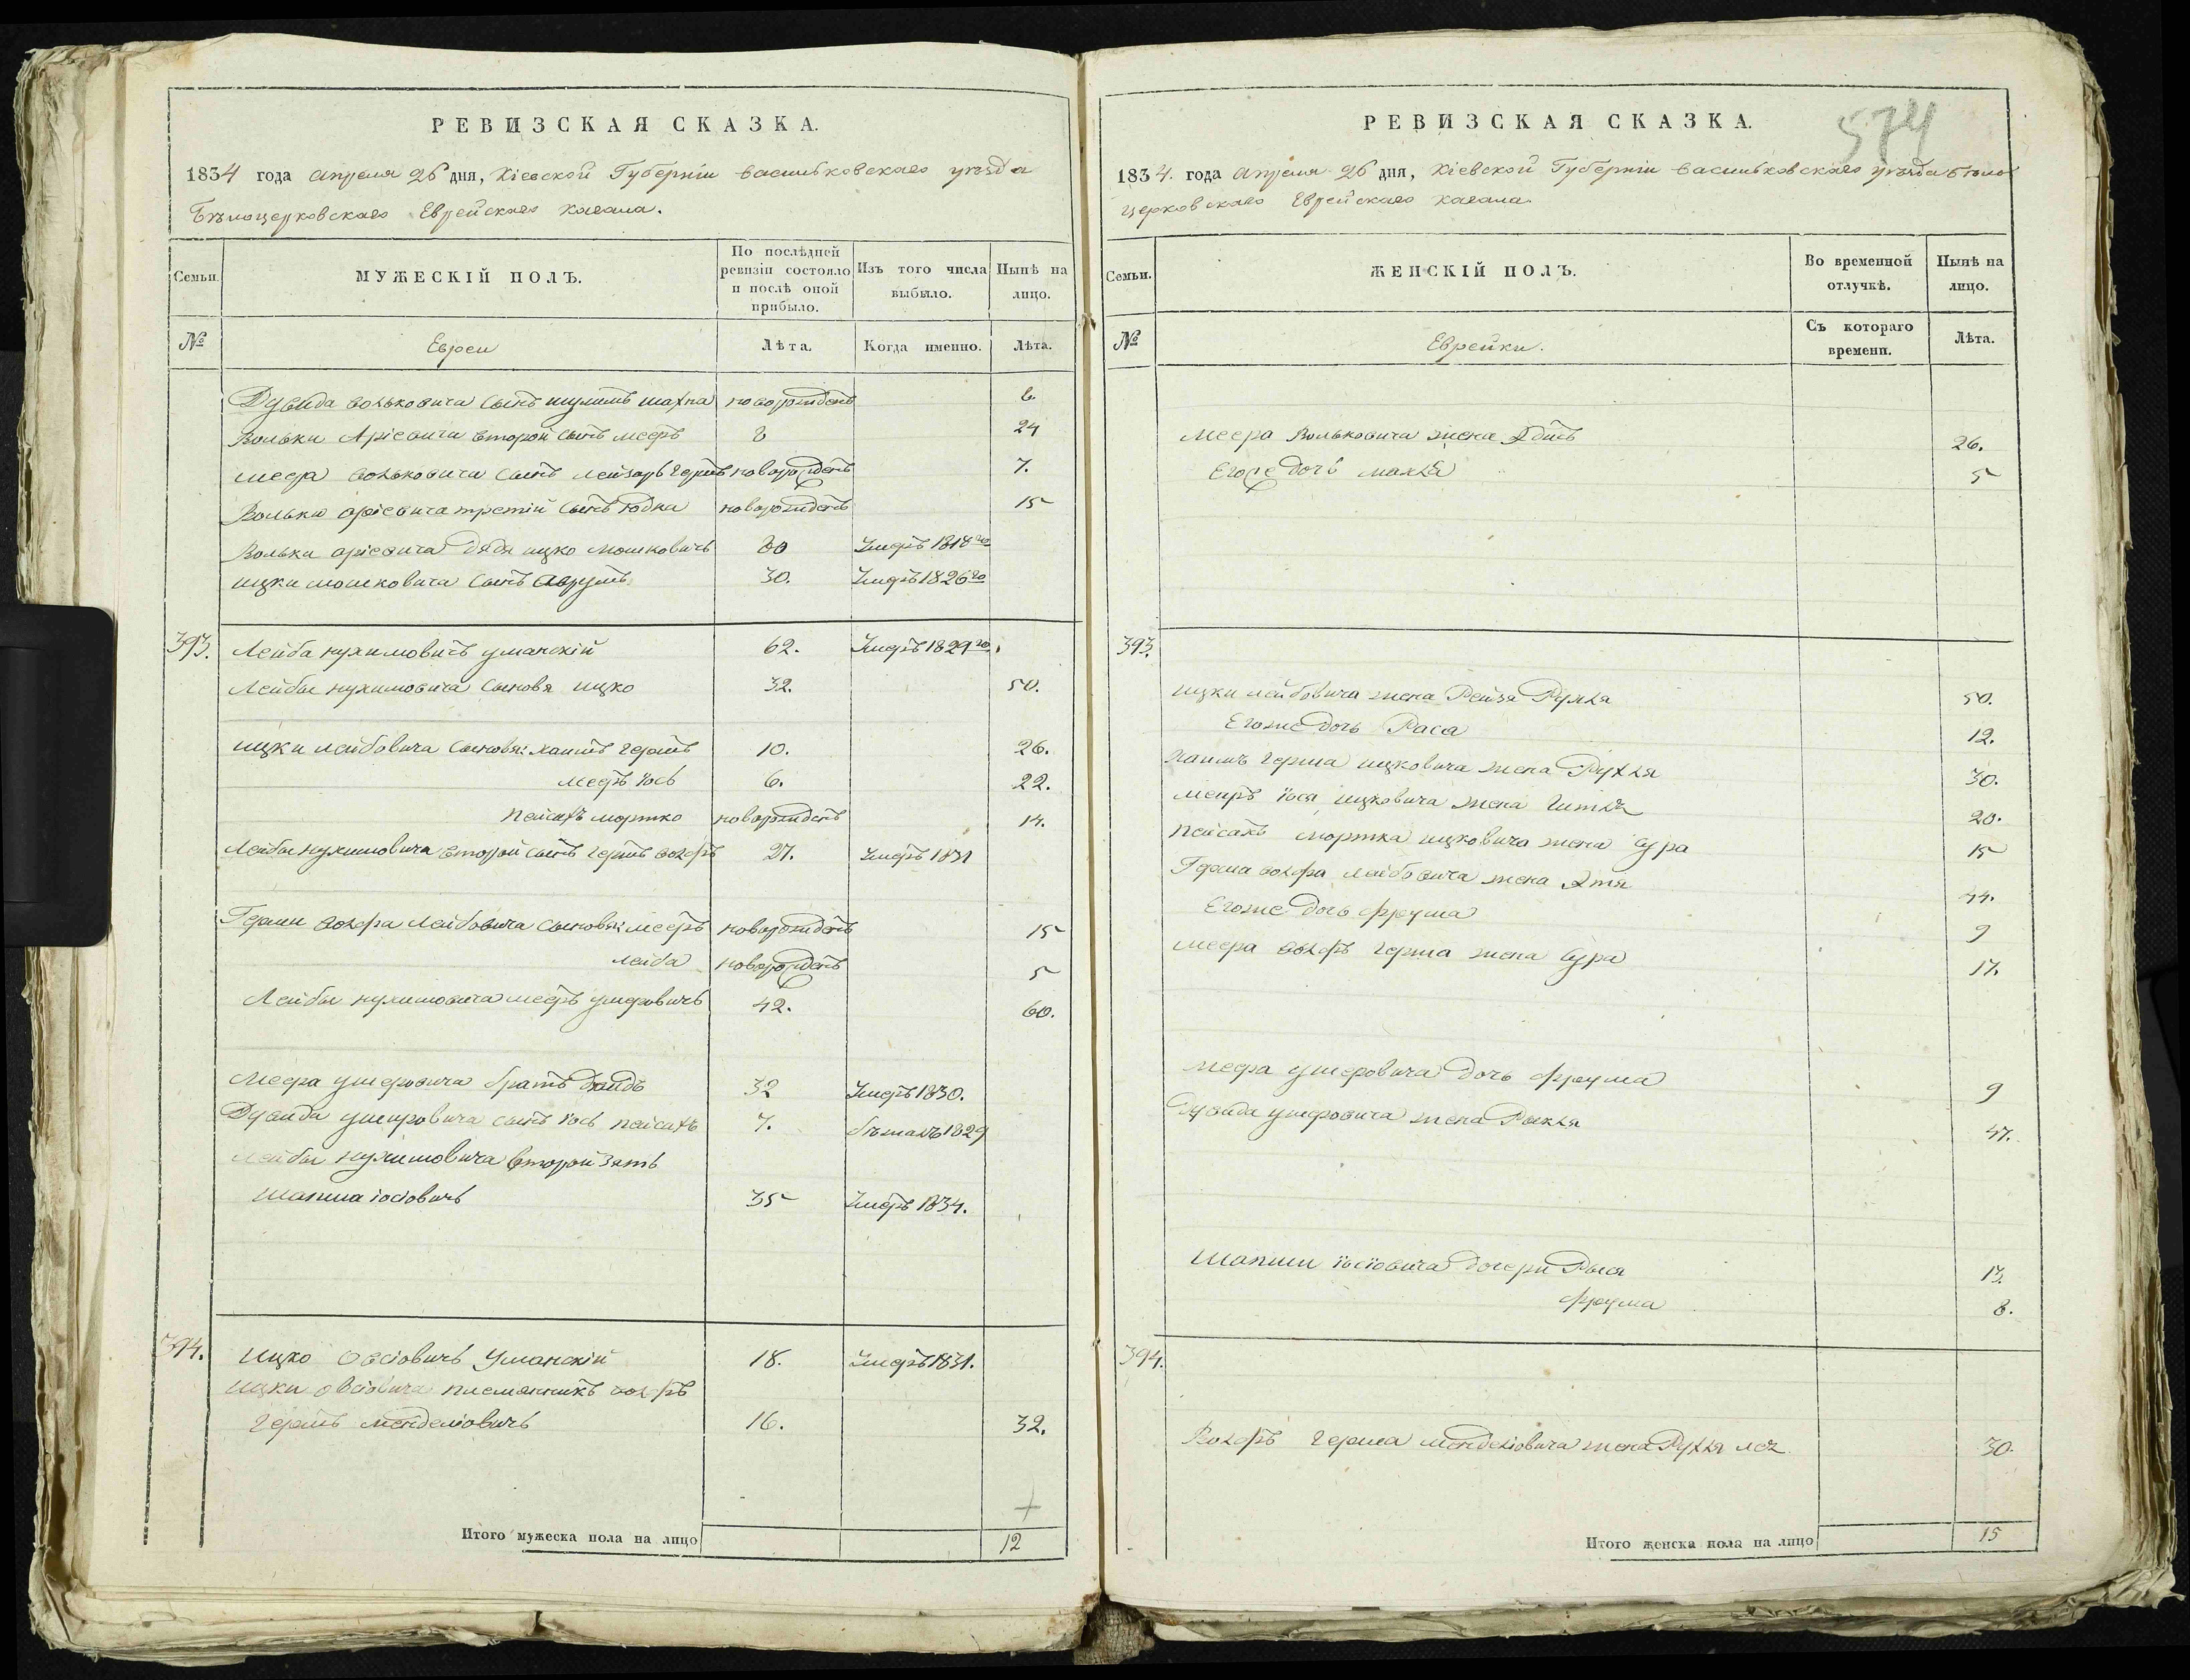 РЕВИЗСКАЯ СКАЗКА.
1834 года апреля 26 дня, Кіевской Губерніи васильковскаго уѣзда
Бѣлоцерковскаго Еврейскаго кагала.
Семьи. МУЖЕСКІЙ ПОЛЪ. По послѣдней ревизіи состояло и послѣ оной прибыло. Изъ того числа выбыло. Нынѣ на лицо.
№ Евреи Лѣта. Когда именно. Лѣта.
Дувида вольковича сынъ шулимъ шахна новорожденъ 6.
Вольки Аріовича второй сынъ мееръ 8 24
меера вольковича сынъ лейзоръ гершъ новорожденъ 7.
Вольки аріовича третій сынъ юдка новорожденъ 15
Вольки аріовича дядя ицко мошковичъ 60 Умеръ 1818го
ицки мошковича сынъ аврумъ 30. Умеръ 1826го
393. Лейба нухимовичъ уманскій 62. Умеръ 1829го.
Лейбы нухимовича сыновя ицко 32. 50.
ицки лейбовича сыновя: хаимъ гершъ 10. 26.
мееръ іось 6. 22.
пейсахъ мортко новорожденъ 14.
Лейбы нухимовича второй сынъ гершъ волфъ 27. Умеръ 1831
Герши волфа лейбовича сыновя: мееръ новорожденъ 15
лейба новорожденъ 5
Лейбы нухимовича мееръ умеровичъ 42. 60.
меера умеровича братъ дувидъ 32 Умеръ 1830.
Дувида умеровича сынъ іось пейсахъ 7. бѣжалъ 1829
лейбы нухимовича второй зять
шапша іосіовичъ 35 Умеръ 1834.
394. ицко овсіовичъ Уманскій 18. Умеръ 1831.
ицки овсіовича племянникъ волфъ
гершъ менделіовичъ 16. 32.
Итого мужеска пола на лицо 12
574
РЕВИЗСКАЯ СКАЗКА.
1834. года апреля 26 дня, Кіевской Губерніи васильковскаго уѣзда бѣло
церковскаго Еврейскаго кагала.
Семьи. ЖЕНСКІЙ ПОЛЪ. Во временной отлучкѣ. Нынѣ на лицо.
№ Еврейки. Съ котораго времени. Лѣта.
меера Вольковича жена 26.
Егоже дочь малка 5
393.
ицки лейбовича жена Рейзя Рухля 50.
Егоже дочь Раса 12.
хаимъ герша ицковича жена Рухля 30.
меиръ іося ицковича жена гитля 20.
пейсахъ мортка ицковича жена сура 15
Герша волфа лейбовича жена этя 44.
Егоже дочь фрума 9
меера волфъ герша жена сура 17.
меера умеровича дочь фрума 9
дувида умеровича жена Рыкля 47.
шапши іосіовича дочери Рыся 13.
фрума 8.
394.
Волфъ герша менделіовича жена Рухля лея 30.
Итого женска пола на лицо 15